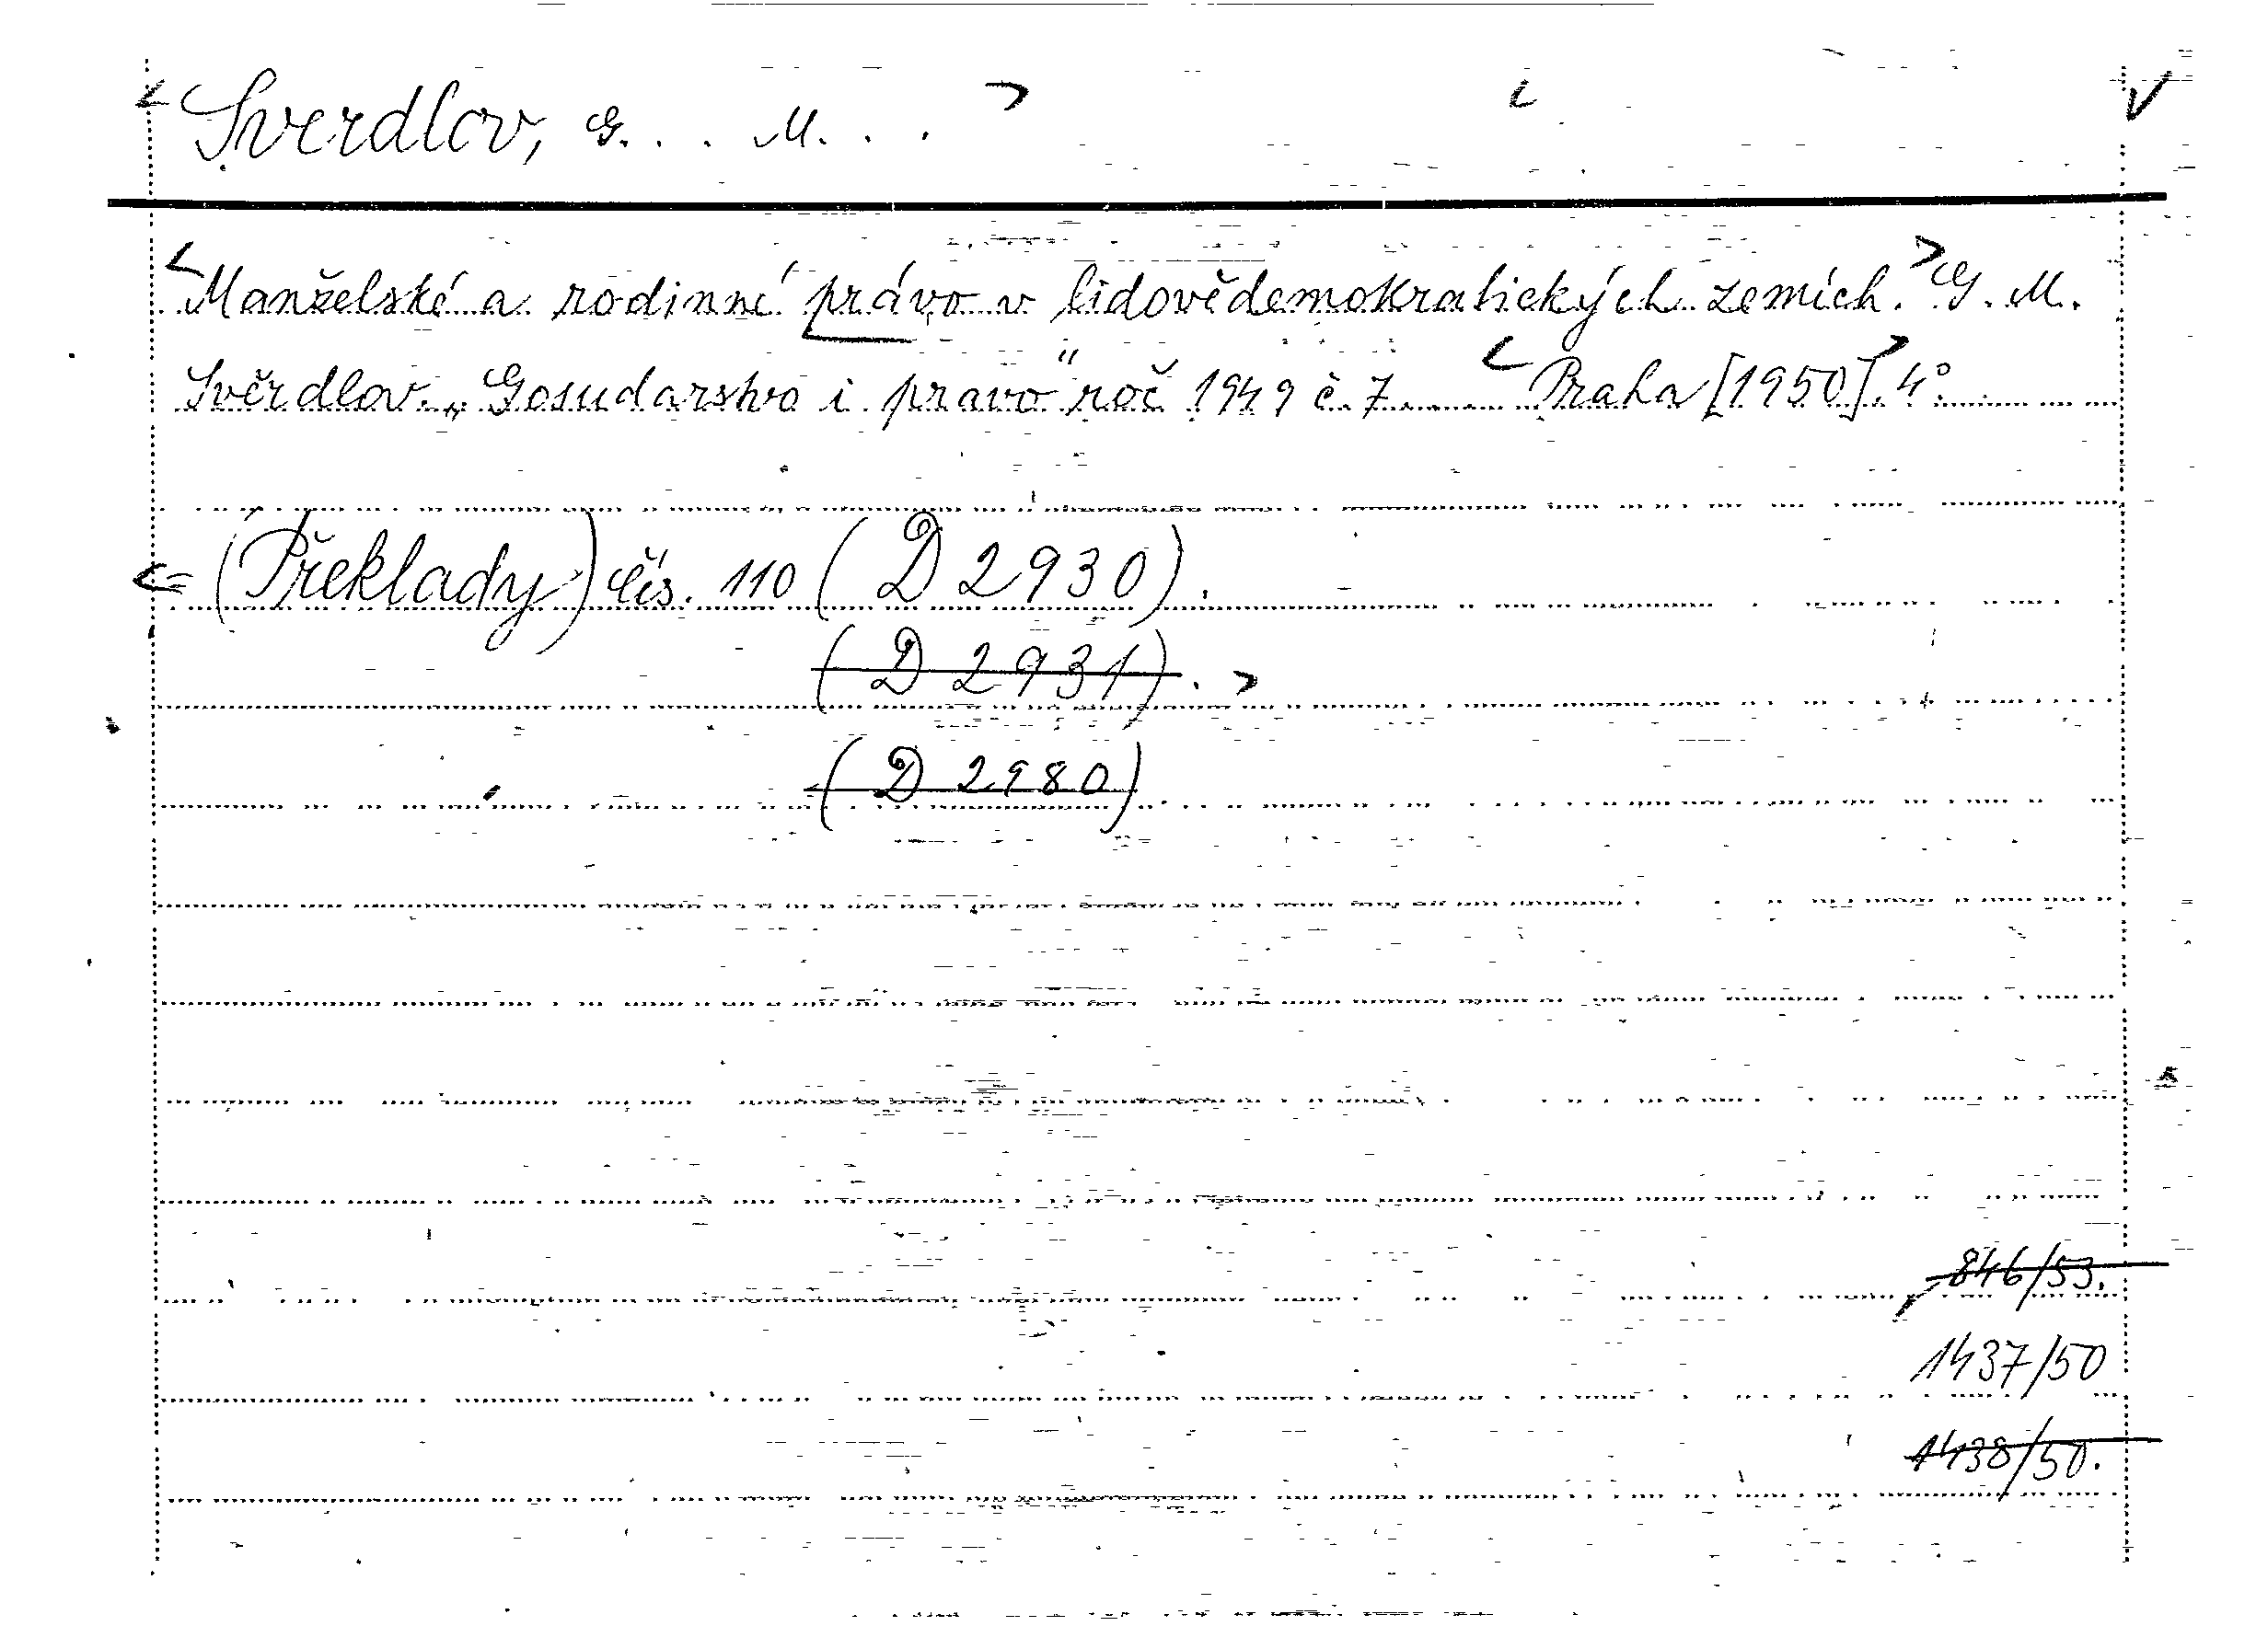 Sverdlov, G... M...
Manželské a rodinné právo v lidovědemokratických zemích. G. M.
Svěrdlov. „Gosudarstvo i pravo" roč 1949 č. 7. Praha [1950]. 4°.
= (Překlady) čís. 110 (D 2930).
(D 2931).
(D 2980)
846/53.
1437/50
1438/50.